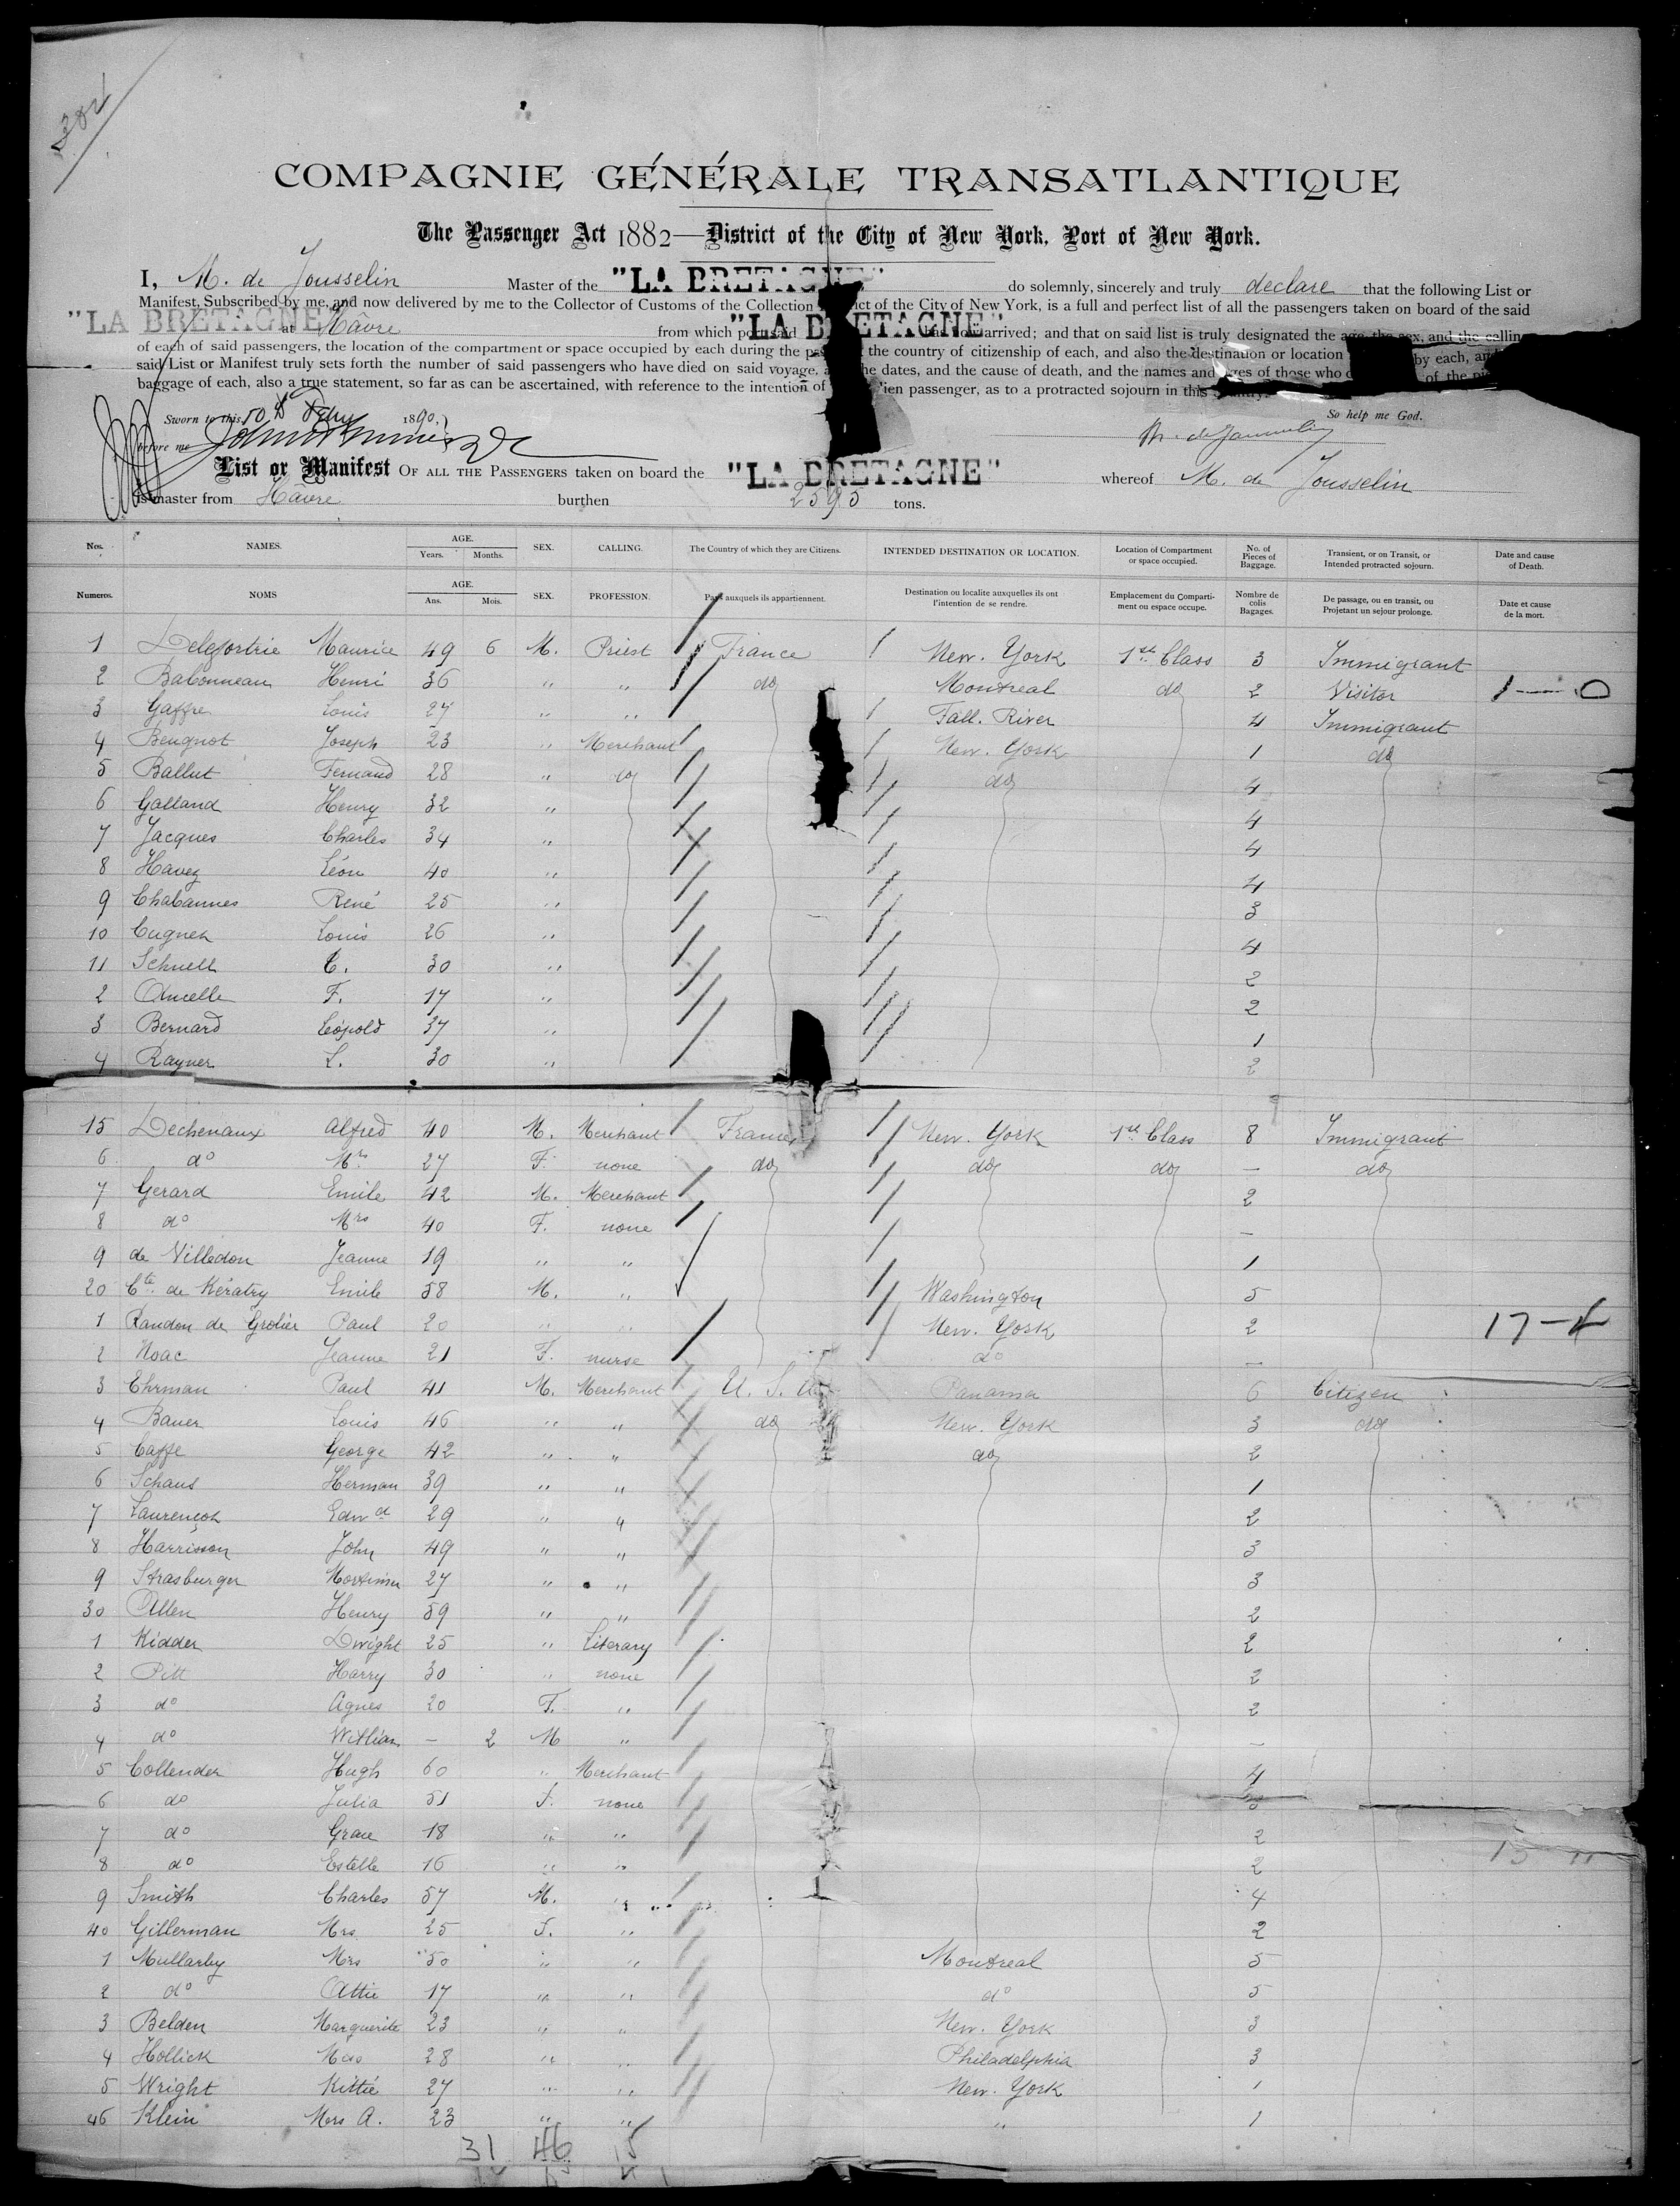 302
COMPAGNIE GÉNÉRALE TRANSATLANTIQUE
The Passenger Act 1882—District of the City of New York, Port of New York.
I, M. de Jousselin Master of the "LA BRETAGNE" do solemnly, sincerely and truly declare that the following List or
Manifest, Subscribed by me, and now delivered by me to the Collector of Customs of the Collection ict of the City of New York, is a full and perfect list of all the passengers taken on board of the said
"LA BRETAGNE" at Hâvre from which port said "LA BRETAGNE" has now arrived; and that on said list is truly designated the age, the sex, and the calling
of each of said passengers, the location of the compartment or space occupied by each during the pas the country of citizenship of each, and also the destination or location by each, and
said List or Manifest truly sets forth the number of said passengers who have died on said voyage, a he dates, and the cause of death, and the names and ages of those who of the pi
baggage of each, also a true statement, so far as can be ascertained, with reference to the intention of lien passenger, as to a protracted sojourn in this country.
Sworn to this 1890, So help me God.
before me
List or Manifest OF ALL THE PASSENGERS taken on board the "LA BRETAGNE" whereof M. de Jousselin
is master from Hâvre burthen 2595 tons.
Nos. NAMES. AGE. Years. Months. SEX. CALLING. The Country of which they are Citizens. INTENDED DESTINATION OR LOCATION. Location of Compartment or space occupied. No. of Pieces of Baggage. Transient, or on Transit, or Intended protracted sojourn. Date and cause of Death.
Numeros. NOMS AGE. Ans. Mois. SEX. PROFESSION. Pays auxquels ils appartiennent. Destination ou localite auxquelles ils ont l'intention de se rendre. Emplacement du Comparti- ment ou espace occupe. Nombre de colis Bagages. De passage, ou en transit, ou Projetant un sejour prolonge. Date et cause de la mort.
1 Delefortrie Maurice 49 6 M. Priest France New. York 1st Class 3 Immigrant
2 Babonneau Henri 36 " " do Montreal do 2 Visitor 1 — 0
3 Gaffre Louis 27 " " Fall. River 4 Immigrant
4 Beugnot Joseph 23 " Merchant New. York 1 do
5 Ballut Fernand 28 " do do 4
6 Galland Henry 32 " 4
7 Jacques Charles 34 " 4
8 Havez Léon 40 " 4
9 Chabannes René 25 " 3
10 Cugnet Louis 26 " 4
11 Schnell C. 30 " 2
2 Ancelle F. 17 " 2
3 Bernard Léopold 37 " 1
4 Rayner L. 30 " 2
15 Dechenaux Alfred 40 M. Merchant France New. York 1st Class 8 Immigrant
6 do Mrs 27 F. none do do do — do
7 Gerard Emile 42 M. Merchant 2
8 do Mrs 40 F. none —
9 de Villedon Jeanne 19 " " 1
20 Cte. de Kératry Emile 58 M. " Washington 5
1 Randon de Grolier Paul 20 " " New. York 2 17 –
2 Noac Jeanne 21 F. nurse do —
3 Ehrman Paul 41 M. Merchant U. S. A. Panama 6 Citizen
4 Bauer Louis 46 " " do New. York 3 do
5 Caffe George 42 " " do 2
6 Schaus Herman 39 " " 1
7 Laurençot Edwd 29 " " 2
8 Harrisson John 49 " " 3
9 Strasburger Mortimer 27 " " 3
30 Allen Henry 59 " " 2
1 Kidder Dwight 25 " Literary 2
2 Pitt Harry 30 " none 2
3 do Agnes 20 F. " 2
4 do William — 2 M " —
5 Collender Hugh 60 " Merchant 4
6 do Julia 51 F. none
7 do Grace 18 " " 2
8 do Estelle 16 " " 2
9 Smith Charles 57 M. " 4
40 Gillerman Mrs 25 F. " 2
1 Mullarby Mrs 50 " " Montreal 5
2 do Attie 17 " " do 5
3 Belden Marguerite 23 " " New. York 3
4 Hollick Mrs 28 " " Philadelphia 3
5 Wright Kittie 27 " " New. York 1
46 Klein Mrs A. 23 " " " 1
31 46 15